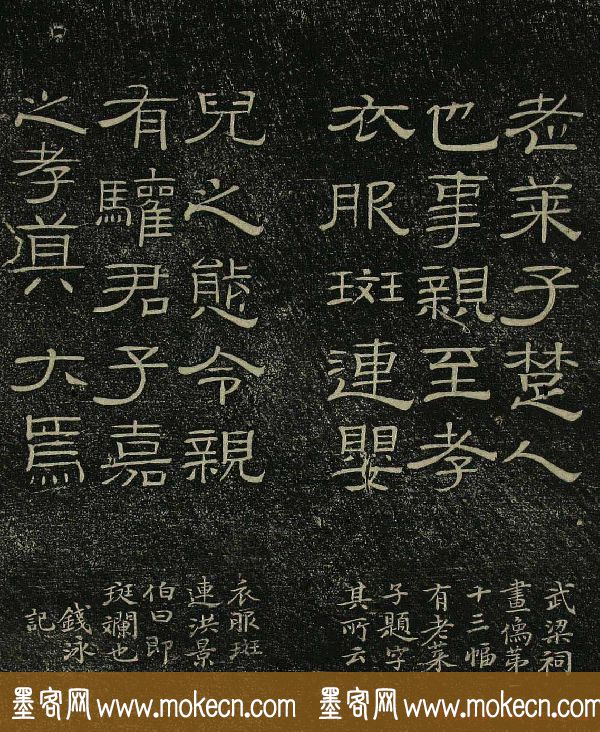 老萊子楚人
也事親至孝
衣服斑連嬰
兒之態令親
有驩君子嘉
之孝莫大焉
武梁祠
畫像第
十三幅
有老萊
子題字
其所云
衣服斑
連洪景
伯曰即
斑斕也
錢泳
記
墨客网 www.mokecn.com 墨客网 www.mokecn.com